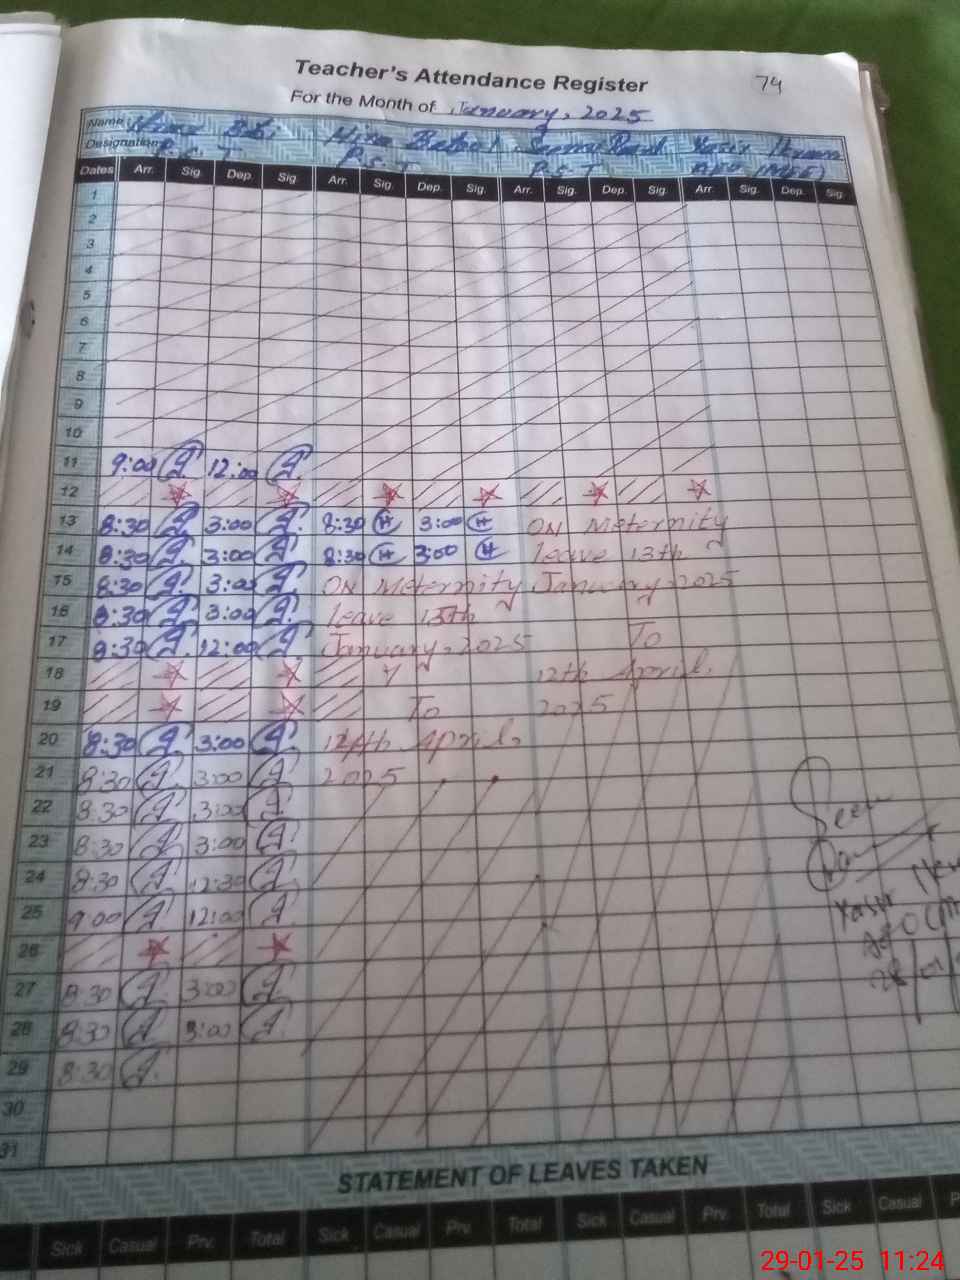 Teacher's Attendance Register
74
For the Month of January, 2025
Name
Designation
P.S.T P.S.T P.S.T
Dates Arr. Sig. Dep. Sig. Arr. Sig. Dep. Sig. Arr. Sig. Dep. Sig. Arr Sig. Dep. Sig
1
2
3
4
5
6
7
8
9
10
11 9:00 12:00
12
13 8:30 3:00 8:30 H 3:00 H ON Meternity
14 8:30 3:00 8:30 H 3:00 H leave 13th
15 8:30 3:00 ON Meternity January 2025
16 8:30 3:00 leave 15th
17 8:30 12:00 January, 2025 To
18 12th April.
19 To 2025
20 8:30 3:00 April,
21 8:30 3:00 2025
22 8:30 3:00
23 8:30 3:00
24 8:30 12:30
25 9:00 12:00
26
27 8:30 3:00
28 8:30 3:00
29 8:30
30
31
Seen
Yasir
STATEMENT OF LEAVES TAKEN
Sick Casual Prv. Total Sick Casual Prv. Total Sick Casual P
29-01-25 11:24